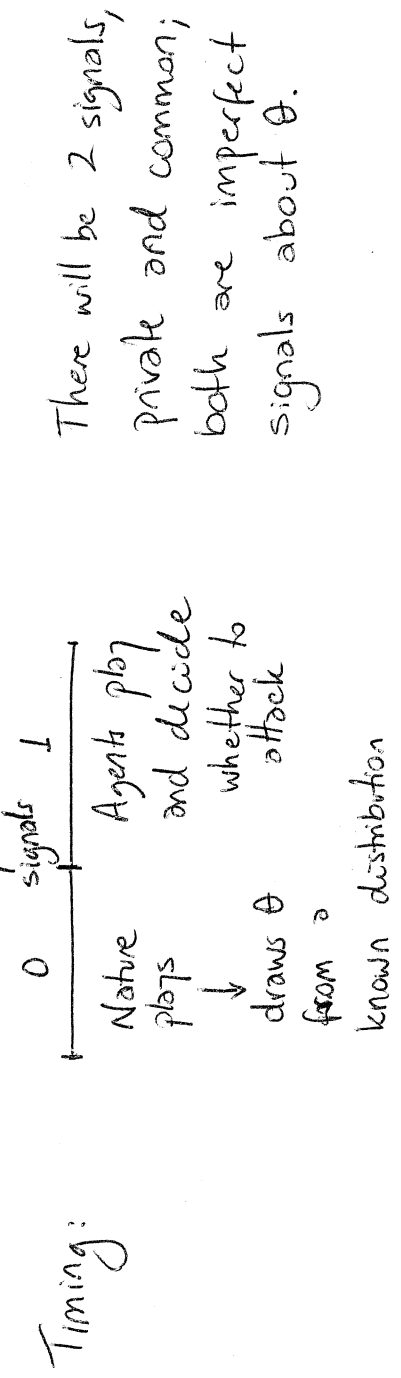 Timing:
0 signals 1
Nature
plays
↓
draws θ
from a
known distribution
Agents play
and decide
whether to
attack
There will be 2 signals,
private and common;
both are imperfect
signals about θ.